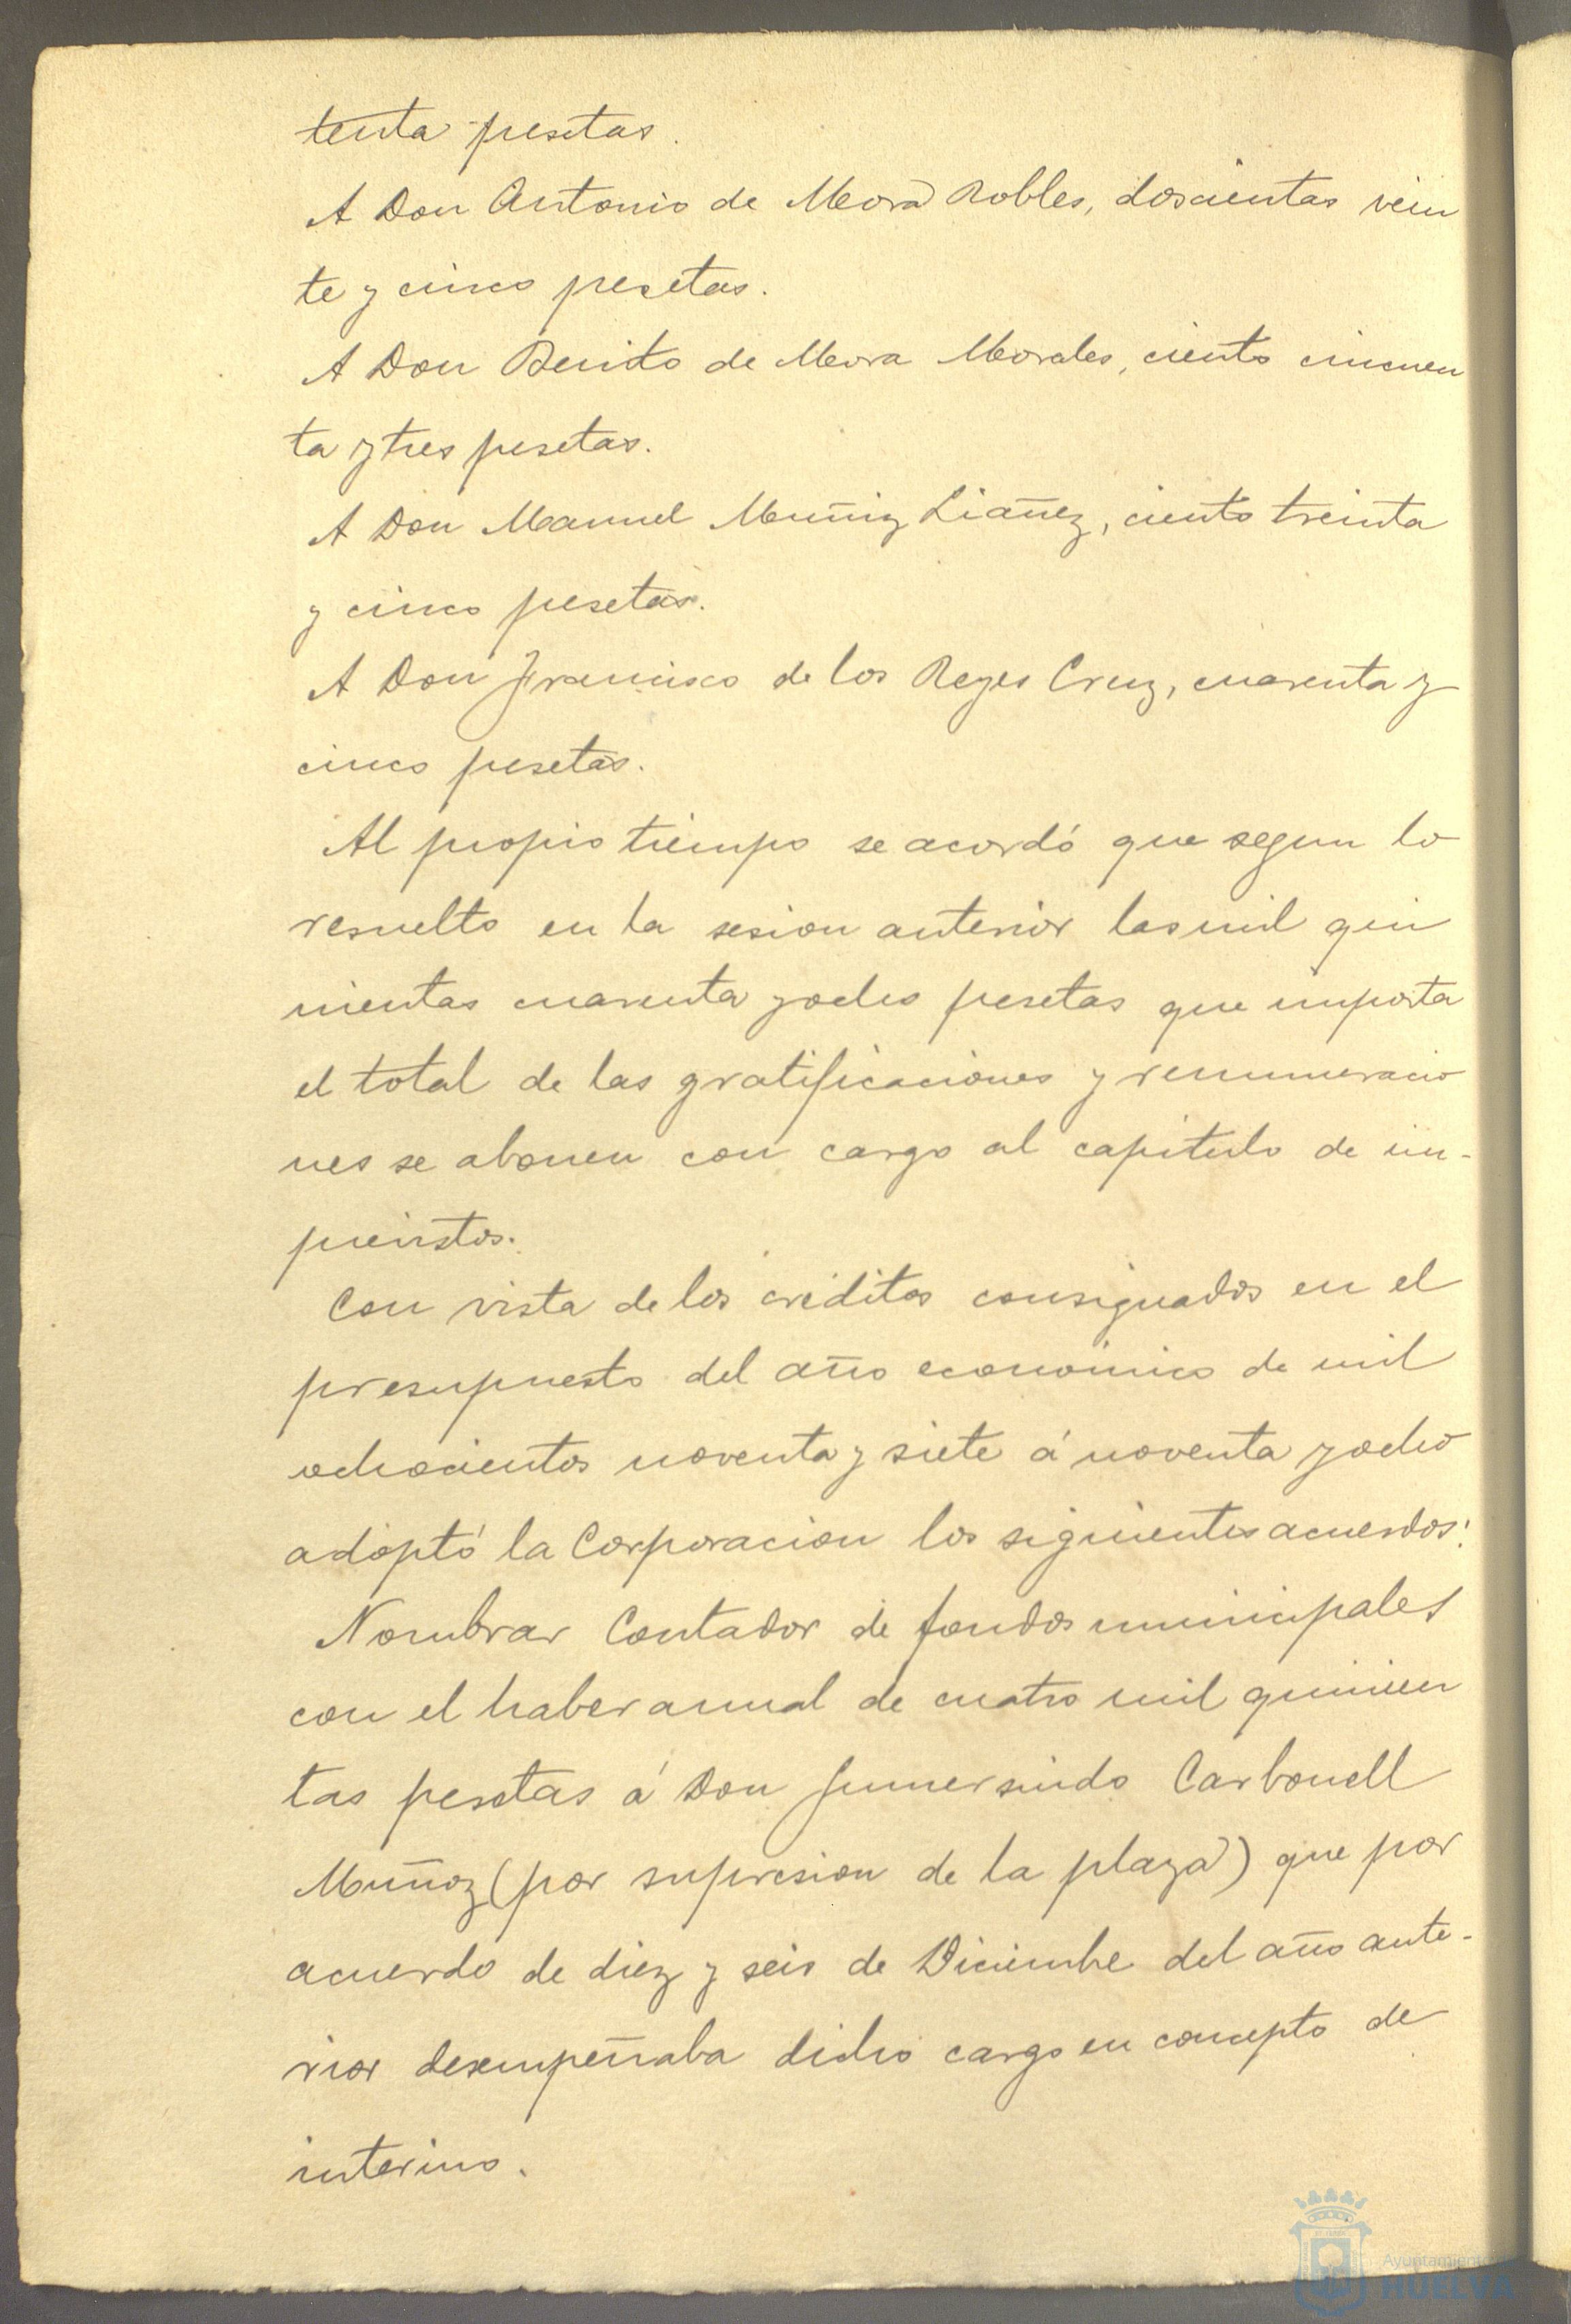 tenta pesetas.
A Don Antonio de Mora Robles, doscientas vein
te y cinco pesetas.
A Don Benito de Mora Morales, ciento cincuen
ta y tres pesetas.
A Don Manuel Muñiz Liañez, ciento treinta
y cinco pesetas.
A Don Francisco de los Reyes Cruz, cuarenta y
cinco pesetas.
Al propio tiempo se acordó que segun lo
resuelto en la sesion anterior las mil qui
nientas cuarenta y ocho pesetas que importa
el total de las gratificaciones y remuneracio
nes se abonen con cargo al capitulo de im-
previstos.
Con vista de los créditos consignados en el
presupuesto del año económico de mil
ochocientos noventa y siete á noventa y ocho
adoptó la Corporacion los siguientes acuerdos:
Nombrar Contador de fondos municipales
con el haber anual de cuatro mil quinien
tas pesetas á Don Gumersindo Carbonell
Muñoz (por supresion de la plaza) que por
acuerdo de diez y seis de Diciembre del año ante-
rior desempeñaba dicho cargo en concepto de
interino.
Ayuntamiento
HUELVA